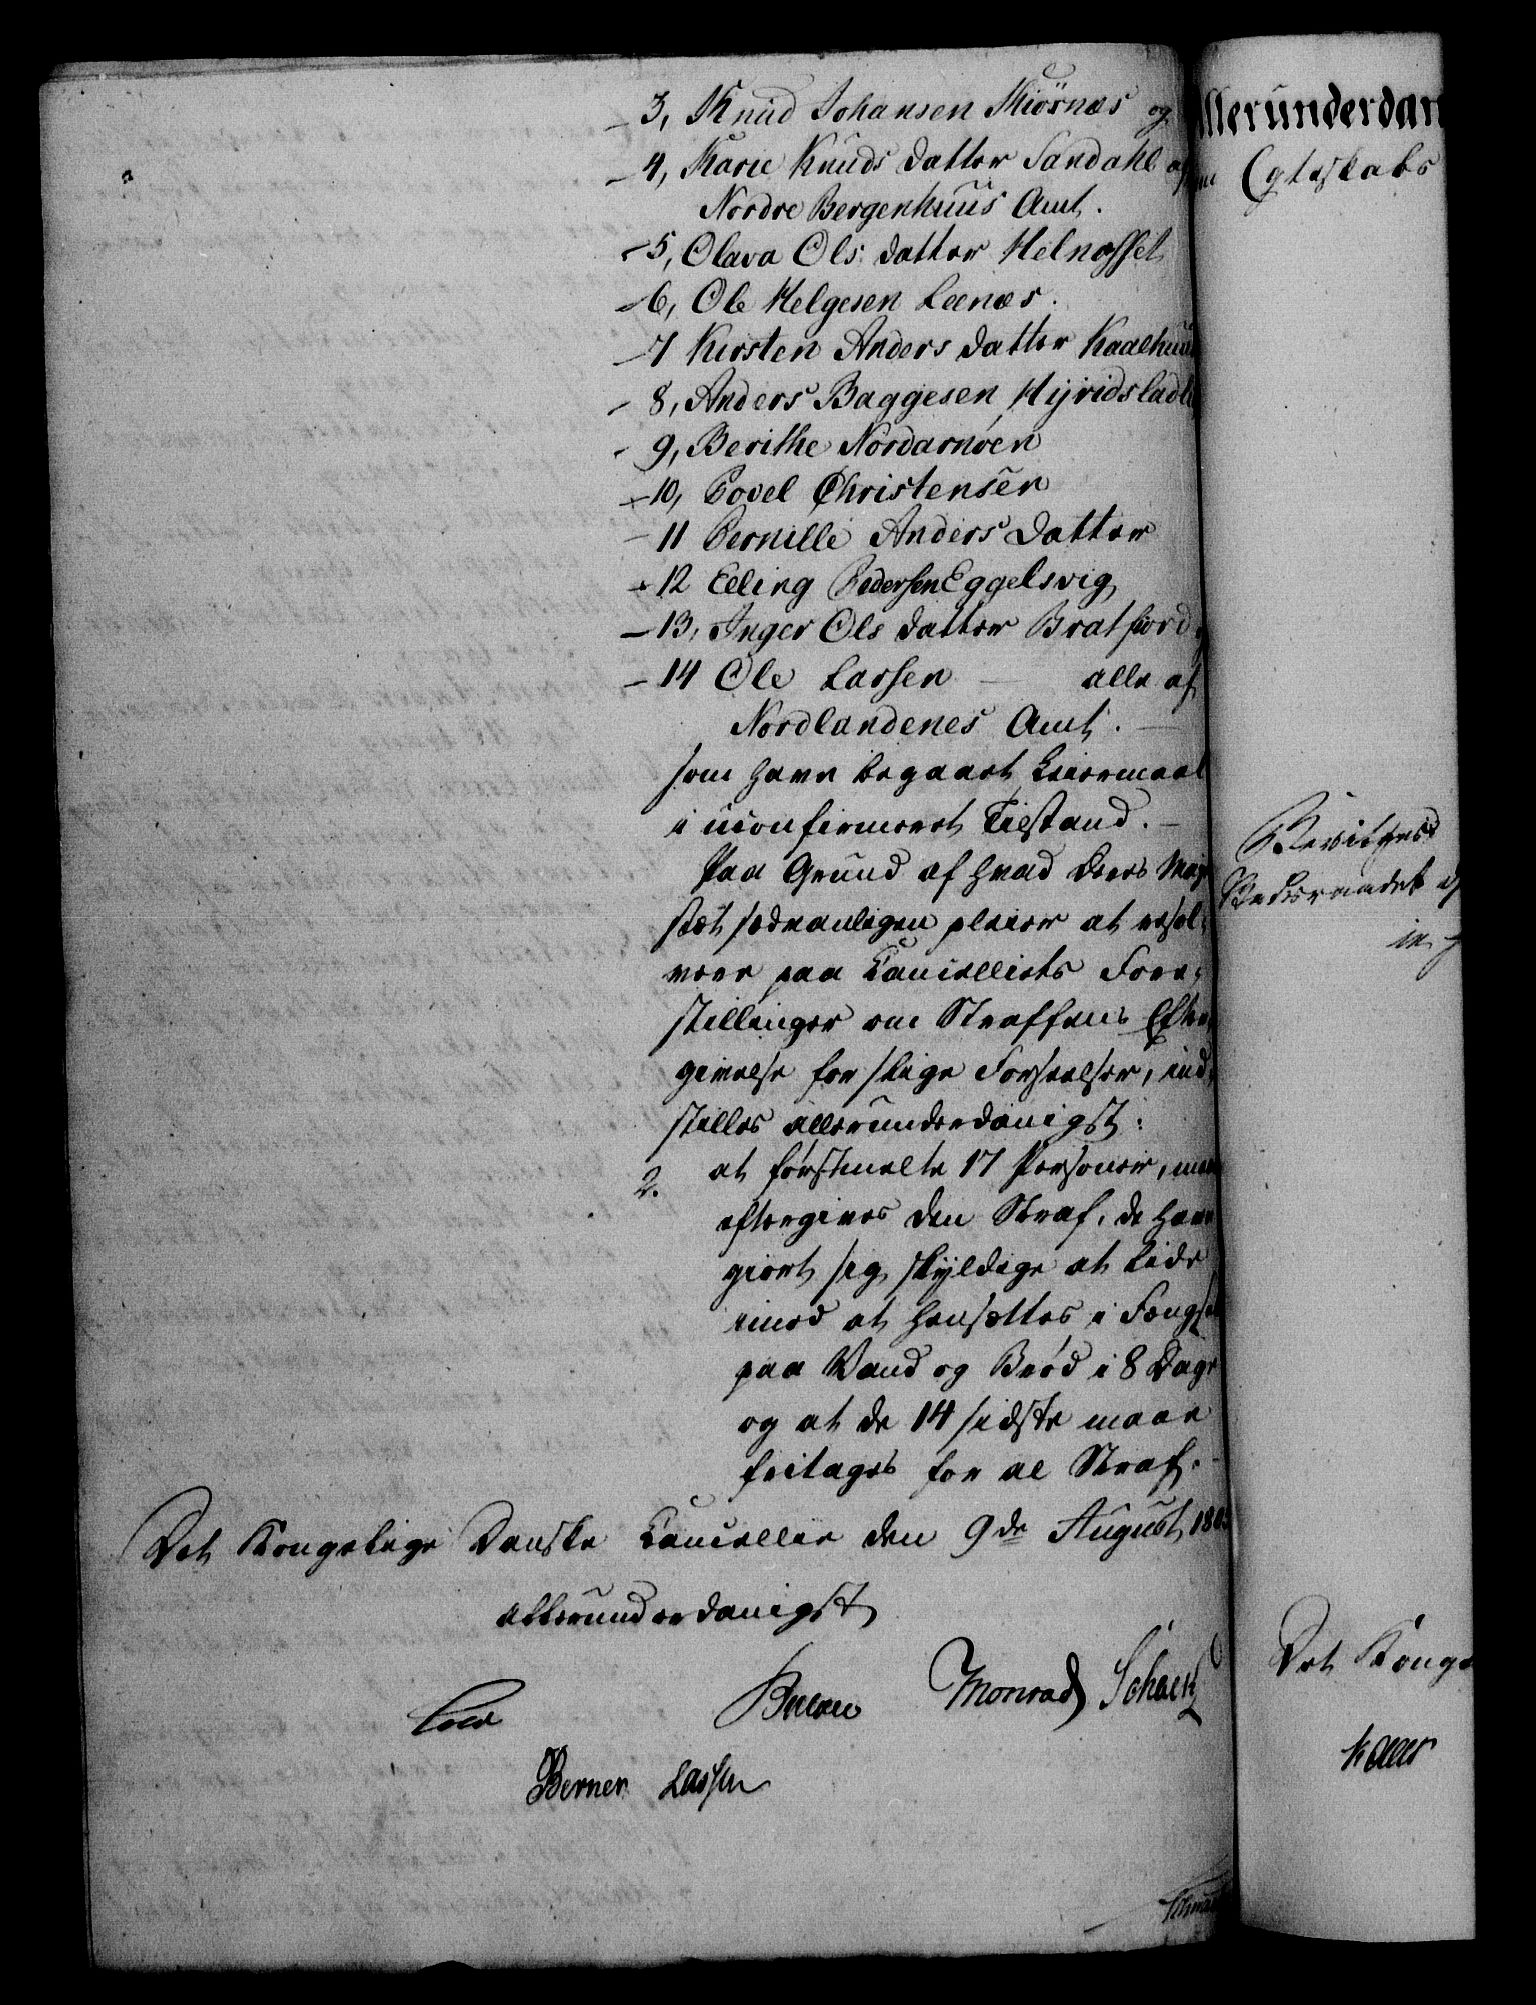 3, Knud Johansen Kiörnæs og
4, Karie Knuds datter Sandahl af
Nordre Bergenhuus Amt.
5, Olava Ols datter Helnæsset
6, Ole Helgesen Leenæs.
7 Kirsten Anders datter Kaalhuus
8, Anders Baggesen
9, Berithe Nordarnøen
10, Povel Christensen
11 Pernille Anders datter
12 Elling Pedersen Eggelsvig
13, Inger Ols datter Bratfiord og
14 Ole Larsen — alle af
Nordlandenes Amt. —
som have begaaet Leiermaal
i uconfirmeret Tilstand. —
Paa Grund af hvad Deres Maje-
stæt sædvanligen pleier at resol-
vere paa Cancelliets Fore-
stillinger om Straffens Efter-
givelse for slige Forseelser, ind-
stilles allerunderdanigst:
2. at førstmelte 17 Personer, maae
eftergives den Straf, de have
giort sig skyldige at lide
imod at hensættes i Fængsel
paa Vand og Brød i 8 Dage
og at de 14 sidste maae
fritages for al Straf. —
Det Kongelige Danske Cancellie den 9de August 180
allerunderdanigst
Monrad Schack
Berner Lassen
Allerunderdan
Egteskabs
Det Konge
Kaas